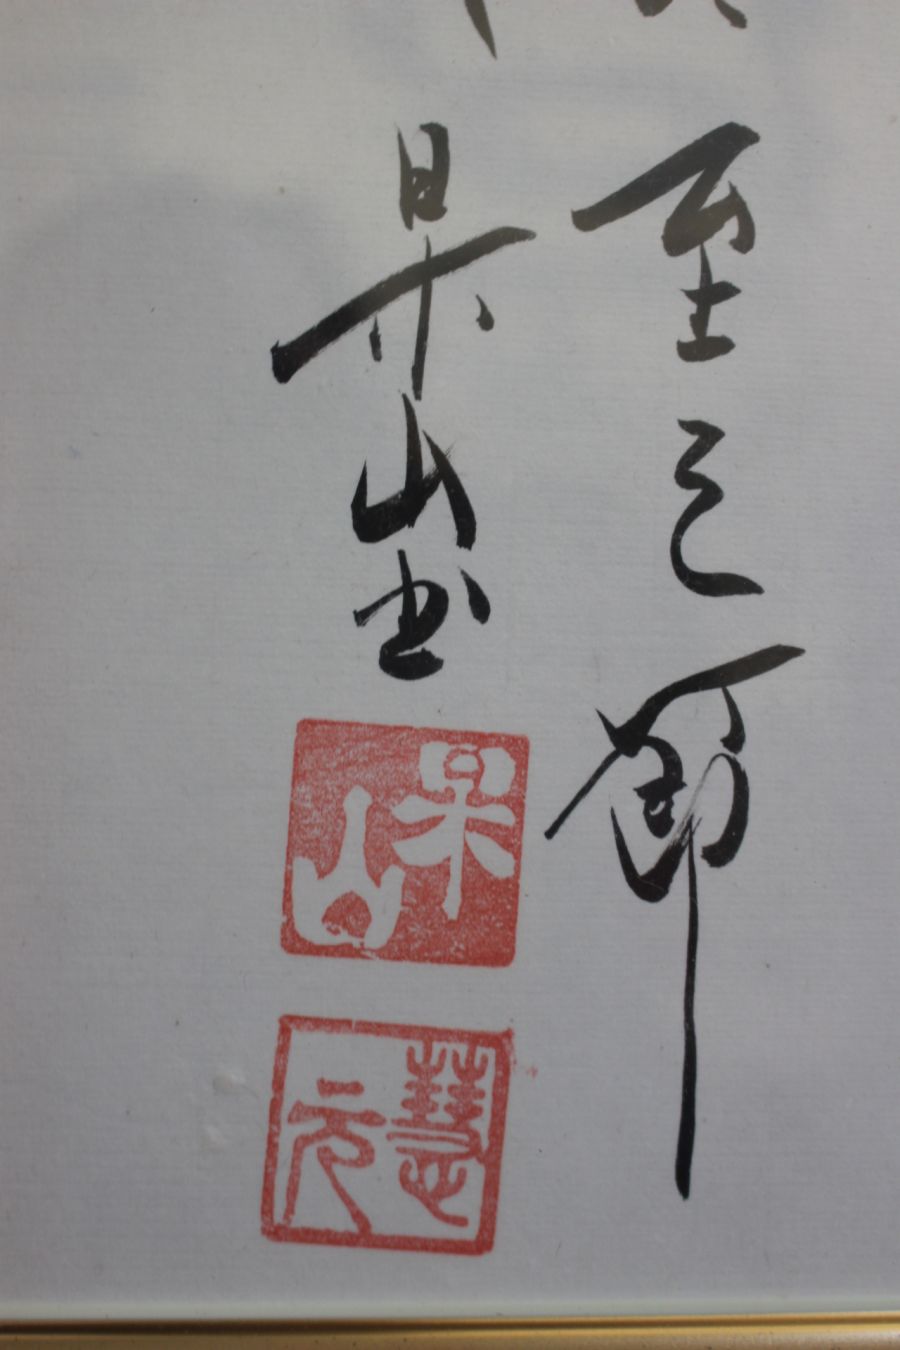 至之節
杲山書
杲山
慧元